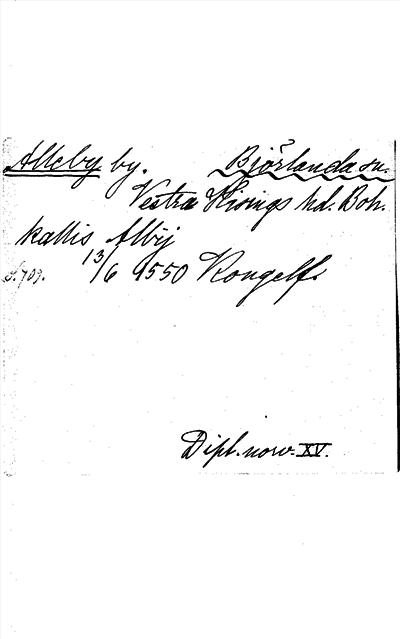 Alleby by. Björlanda sn.
Vestra Hisings hd. Boh.
kallis Albij
s. 709. 13/6 1550 Kongelf.
Dipl. norv. XV.